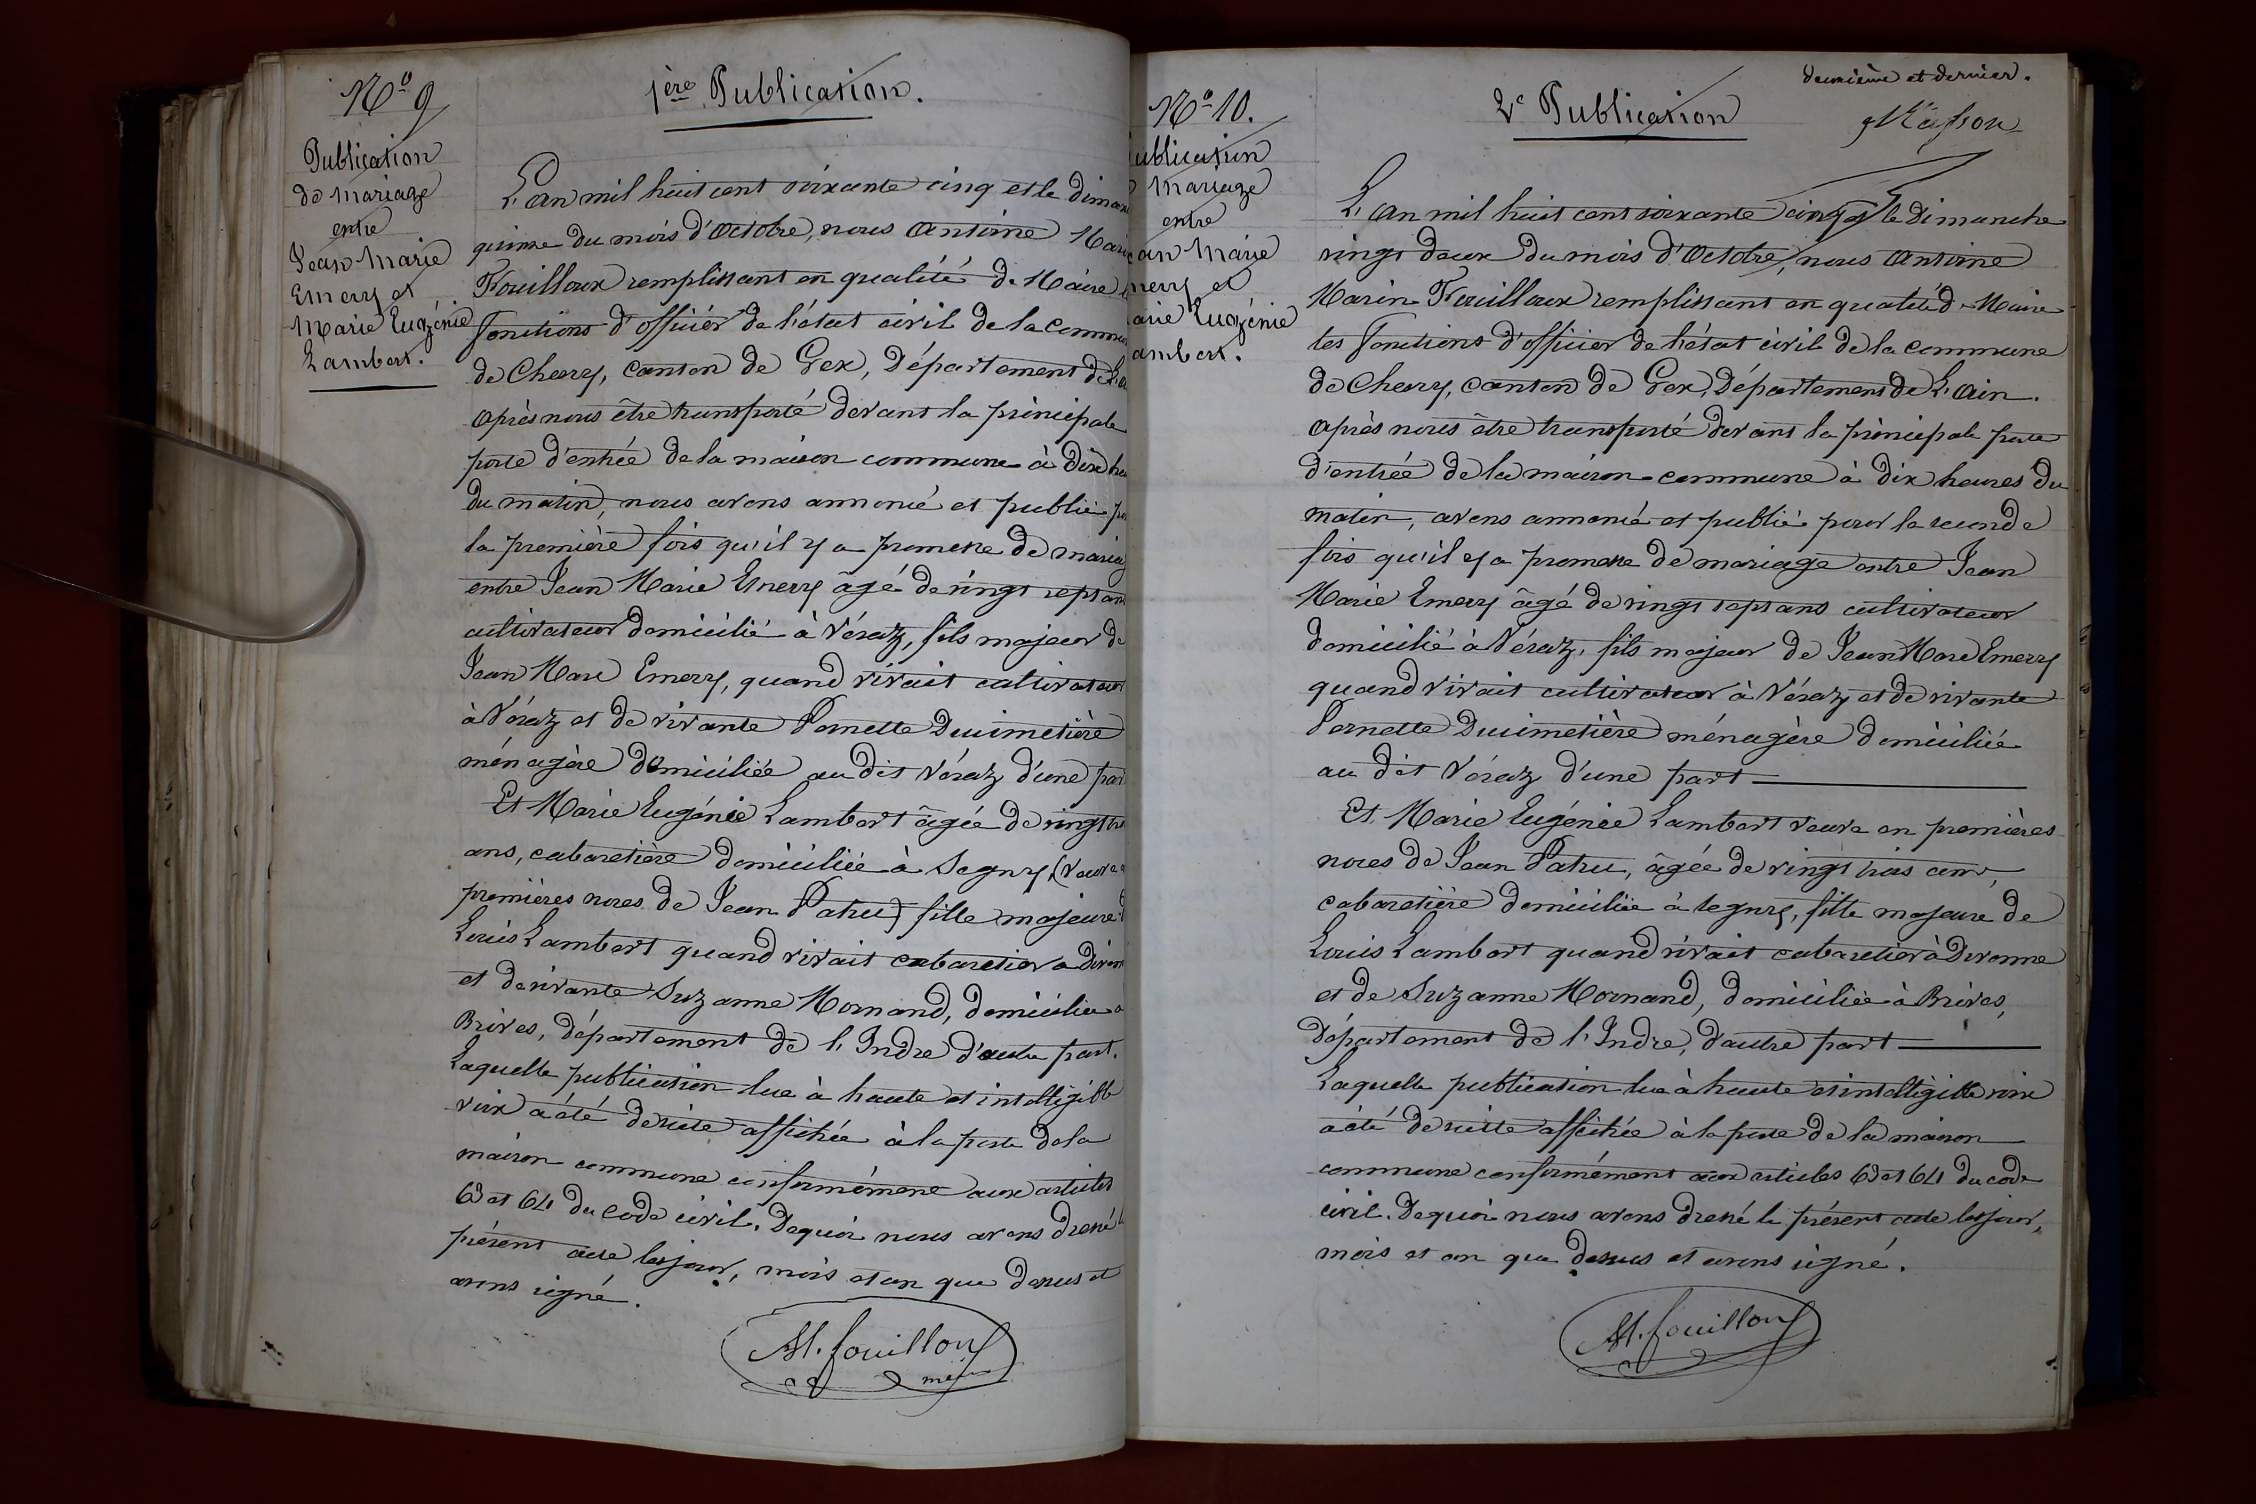 Nº 9
Publication
de mariage
entre
Jean Marie
Emery et
Marie Eugénie
Lambert.
1ère Publication.
L'an mil huit cent soixante cinq et le diman
quinze du mois d'Octobre, nous Antoine Marin
Fouilloux remplissant en qualité de Maire
fonctions d'officier de l'état civil de la commun
de Chevry, canton de Gex, Département de l'
Après nous être transporté devant la principale
porte d'entrée de la maison commune à dix heu
du matin, nous avons annoncé et publié po
la première fois qu'il y a promesse de maria
entre Jean Marie Emery âgé de vingt sept ans
cultivateur domicilié à Véraz, fils majeur de
Jean Marc Emery, quand vivait cultivateur
à Véraz et de vivante Pernette Ducimetière
ménagère domiciliée au dit Véraz d'une part
Et Marie Eugénie Lambert âgée de vingt tro
ans, cabaretière domiciliée à Segny, (veuve e
premières noces de Jean Patru) fille majeure d
Louis Lambert quand vivait cabaretier à Divonn
et de vivante Suzanne Mornand, domiciliée à
Brives, département de l'Indre d'autre part.
Laquelle publication lue à haute et intelligible
voix a été de suite affichée à la porte de la
maison commune conformément aux articles
63 et 64 du code civil. De quoi nous avons dressé l
présent acte les jour, mois et an que dessus et
avons signé.
AM. fouilloux
Nº 10.
ublication
mariage
entre
ean Marie
mery et
arie Eugénie
ambert.
2e Publication
deuxième et dernier.
L'an mil huit cent soixante cinq et le Dimanche
vingt deux du mois d'Octobre, nous Antoine
Marin Fouilloux remplissant en qualité de Maire
les fonctions d'officier de l'état civil de la commune
de Chevry, canton de Gex, Département de L'Ain.
Après nous être transporté devant la principale porte
d'entrée de la maison commune à dix heures du
matin, avons annoncé et publié pour la seconde
fois qu'il y a promesse de mariage entre Jean
Marie Emery âgé de vingt sept ans cultivateur
domicilié à Véraz, fils majeur de Jean Marc Emery
quand vivait cultivateur à Véraz et de vivante
Pernette Ducimetière ménagère domiciliée
au dit Véraz d'une part
Et Marie Eugénie Lambert veuve en premières
noces de Jean Patru, âgée de vingt trois ans,
cabaretière domiciliée à Segny, fille majeure de
Louis Lambert quand vivait cabaretier à Divonne
et de Suzanne Mornand, domiciliée à Brives,
département de l'Indre, d'autre part
Laquelle publication lue à haute et intelligible voix
a été de suite affichée à la porte de la maison
commune conformément aux articles 63 et 64 du code
civil. De quoi nous avons dressé le présent acte les jour,
mois et an que dessus et avons signé.
AM. fouilloux